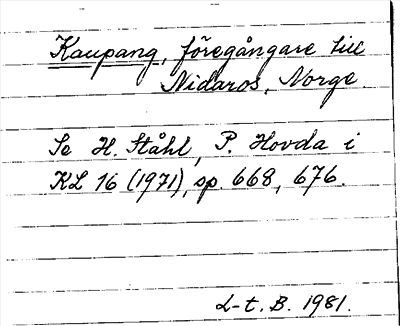 Kaupang, föregångare till
Nidaros, Norge.
Se H. Ståhl, P. Hovda i
KL 16 (1971), sp. 668, 676.
L-t. B. 1981.